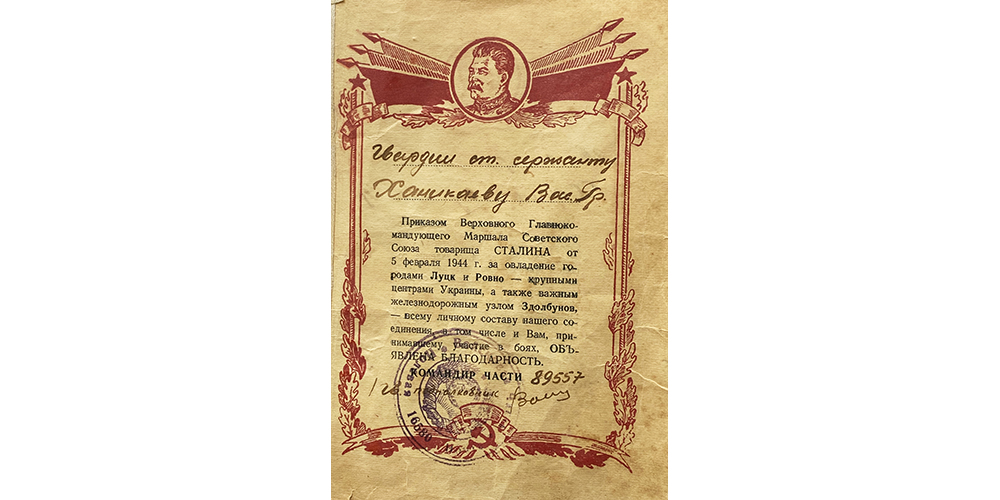 Гвардии ст. сержанту
Ханикаеву Вас. Гр.
Приказом Верховного Главноко-
мандующего Маршала Советского
Союза товарища СТАЛИНА от
5 февраля 1944 г. за овладение го-
родами Луцк и Ровно — крупными
центрами Украины, а также важным
железнодорожным узлом Здолбунов,
— всему личному составу нашего со-
единения, в том числе и Вам, при-
нимавшему участие в боях, ОБЪ-
ЯВЛЕНА БЛАГОДАРНОСТЬ.
КОМАНДИР ЧАСТИ 89557
гв. подполковник
16680